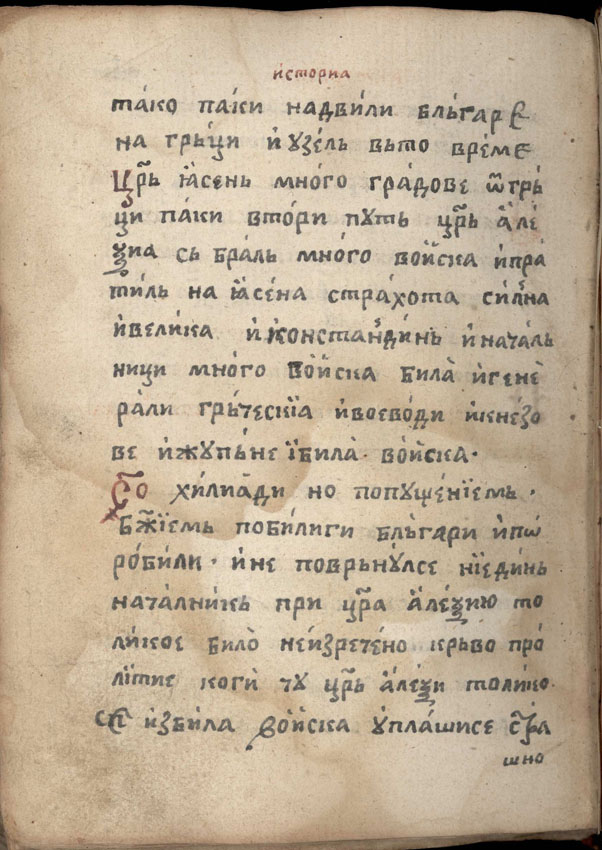 исторїа
тако паки надвили бльгаре
на грьци и узель вьто време
Цр҃ь ꙗсень много градове ѿгрь
ци паки втори путь цр҃ь але
ѯиа сьбраль много воиска ипра
тиль на ꙗсена страхота силна
ивелика иконстандинь иначаль
ници много воиска била игене
рали грьческїа ивоеводи икнезо
ве ижупане їбила воиска ·
Сто хилиади но попущениемь ·
Бж҃їемь побилиги бльгари ипо
робили · ине поврьнулсе нїединь
началникь при цр҃а алеѯию то
ликое било неизречено крьво про
литие коги чу цр҃ь алеѯи толико
се избила воиска уплашисе стра
шно